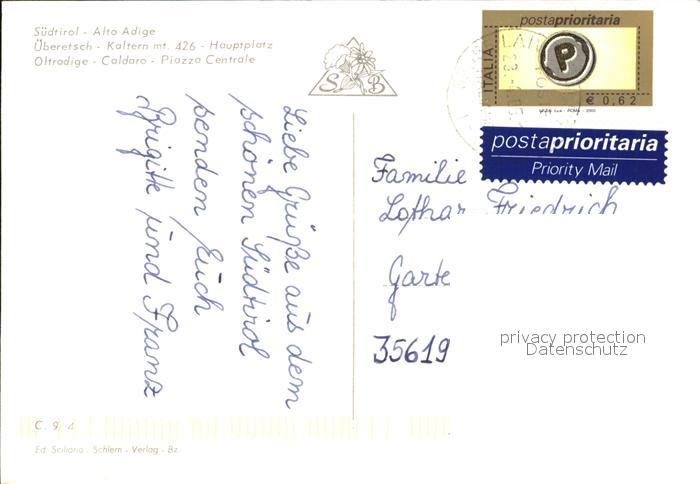 Südtirol - Alto Adige
Überetsch - Kaltern mt. 426 - Hauptplatz
Oltradige - Caldaro - Piazza Centrale
S B
Liebe Grüße aus dem
schönen Südtirol
senden Euch
Brigitte und Franz
C. 9/4
Ed. Sciliana - Schlern - Verlag - Bz.
postaprioritaria
ITALIA
P
€ 0,62
postaprioritaria
Priority Mail
Familie
Lothar Friedrich
Garte
35619
privacy protection
Datenschutz